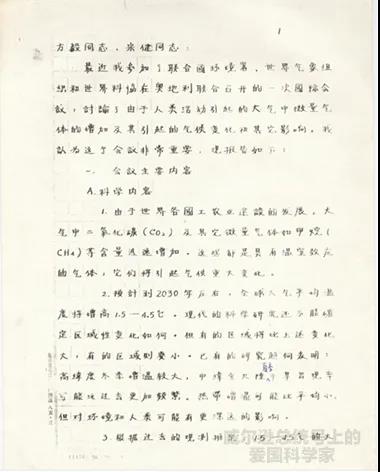 1
方毅同志,宋健同志:
最近我参加了联合國环境署,世界气象组
织和世界科协在奥地利联合召开的一次國际会
议,討論了由于人类活动引起的大气中微量气
体的增加及其引起的气候变化和其它影响。我
认为这个会议非常重要,现报告如下:
一. 会议主要内容
A.科学内容
1.由于世界各國工农业建設的发展,大
气中二氧化碳(CO₂)及其它微量气体如甲烷
(CH₄)等含量迅速增加。这些都是具有温室效应
的气体,它们将引起气候重大变化。
2.预計到2030年左右,全球大气平均温
度将增高1.5—4.5℃。现代的科学研究还不能确
定区域性变化如何。但有的区域将比上述变化
大,有的区域则要小。已有的研究结何表明:
高纬度冬季增温较大,中纬度大陸夏季旱现率
可能比过去更加频繁。热带增温可能比平均小,
但对环境和人类可能有更深远的影响。
3.根据过去的观测推算,1.5—4.5℃的大
威尔逊总统号上的
爱国科学家